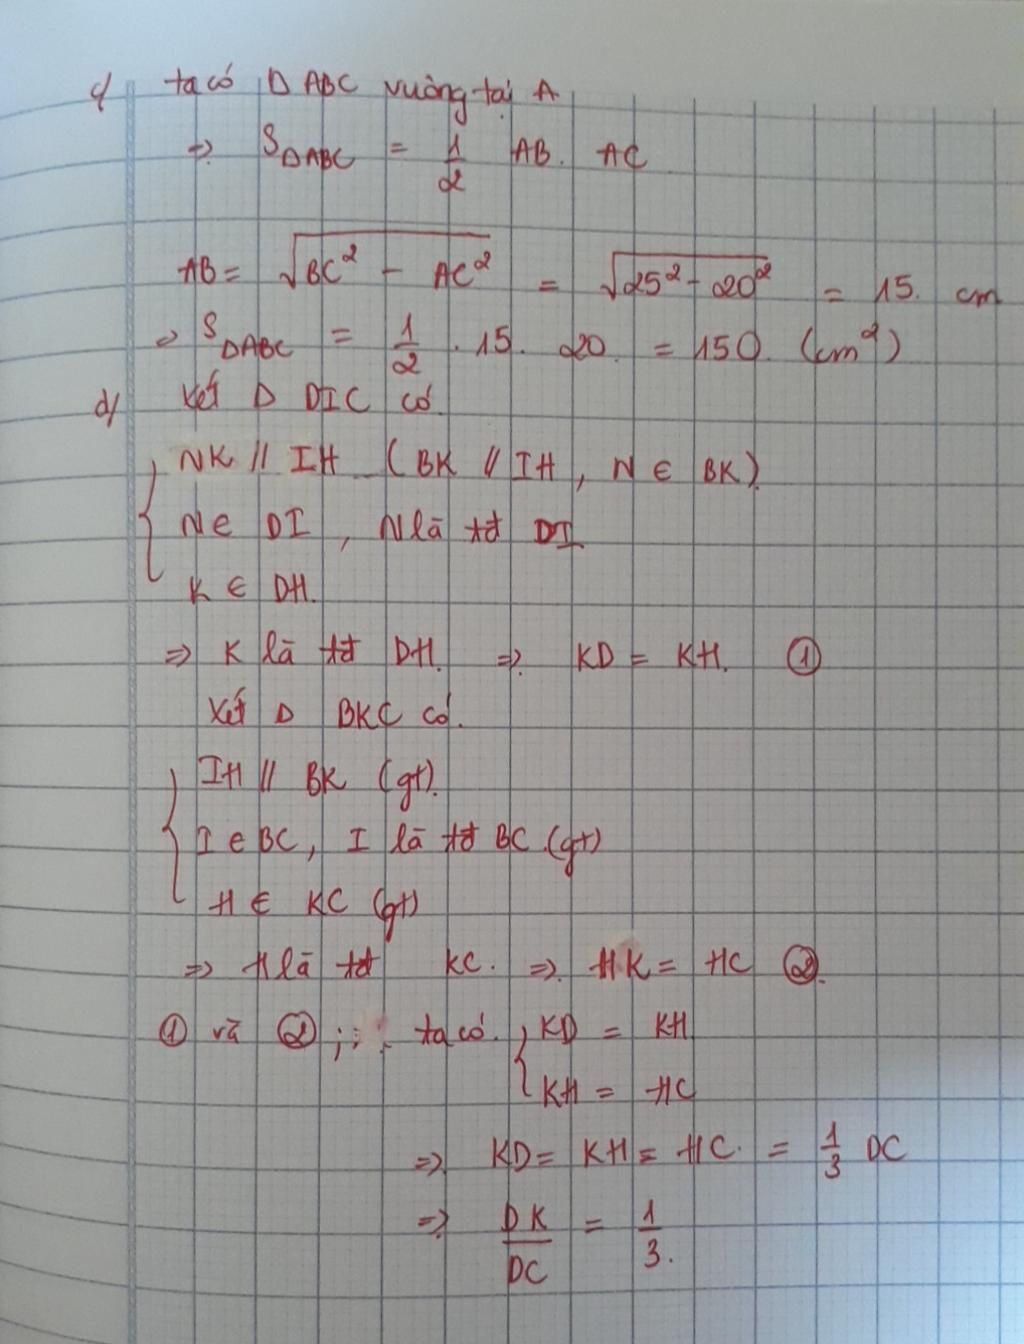 c/ ta có Δ ABC vuông tại A
=> S ΔABC = 1/2 AB. AC
AB = √(BC² - AC²) = √(25² - 20²) = 15. cm
=> S ΔABC = 1/2 . 15. 20. = 150. (cm²)
d/ Xét Δ DIC có
{ NK // IH (BK // IH, N ∈ BK).
N ∈ DI, N là tđ DI
K ∈ DH.
=> K là tđ DH. => KD = KH. ①
Xét Δ BKC có.
{ IH // BK (gt).
I ∈ BC, I là tđ BC.(gt)
H ∈ KC (gt)
=> H là tđ KC. => HK = HC ②.
① và ② ;;; ta có. { KD = KH
KH = HC
=> KD = KH = HC. = 1/3 DC
=> DK/DC = 1/3.